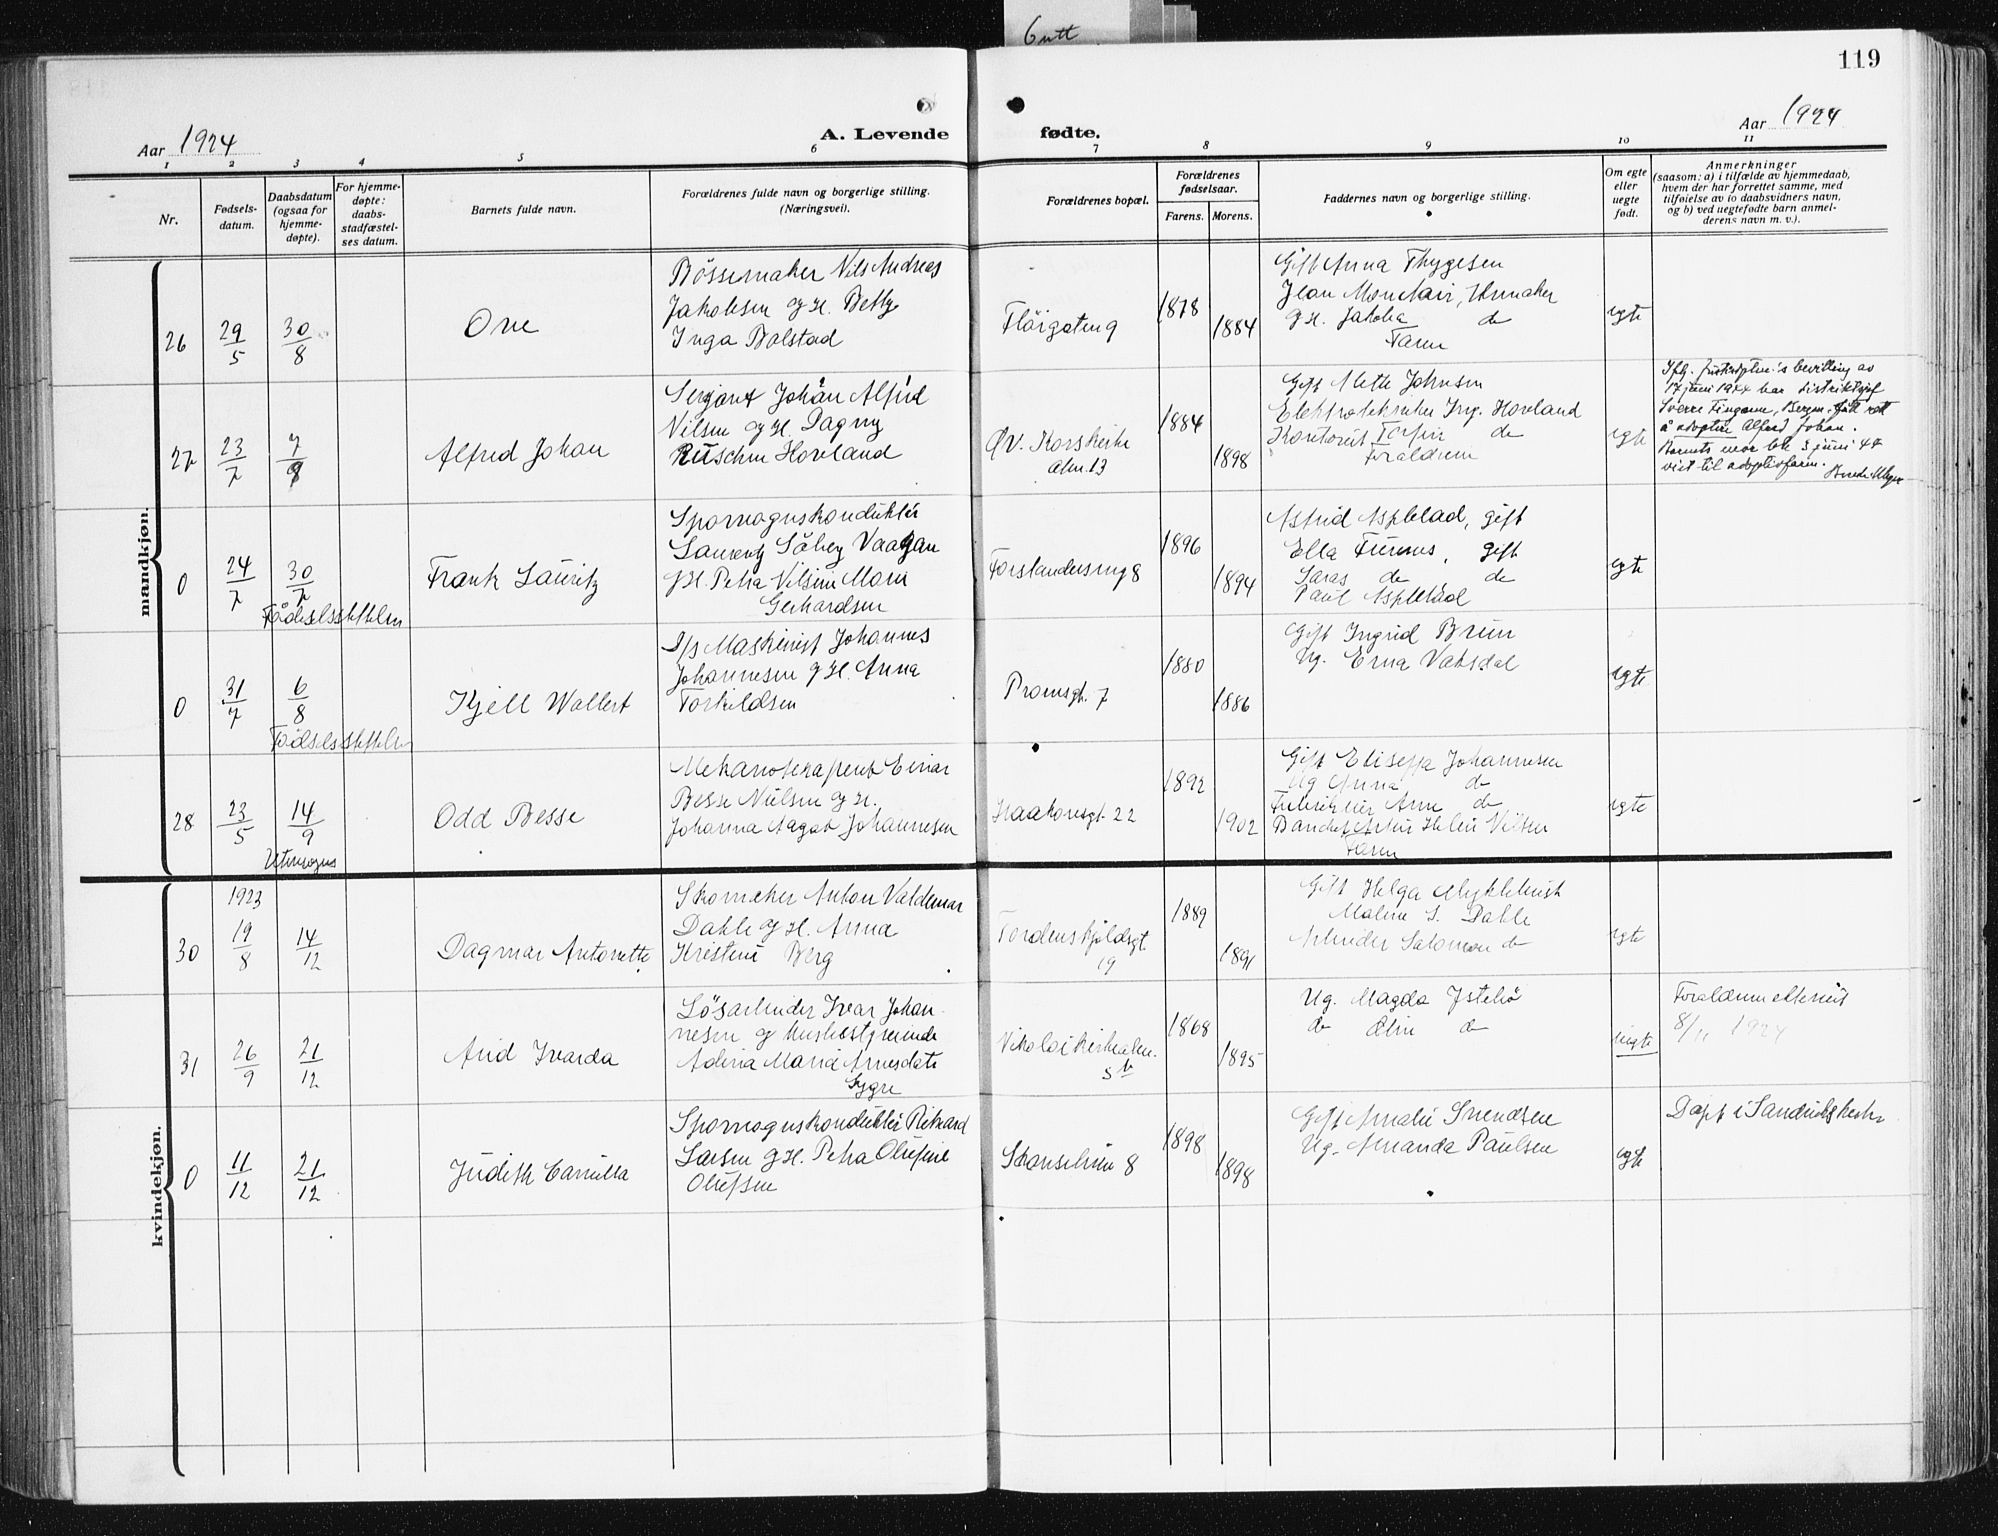 Gutt
119
Aar 1924
A. Levende fødte.
Aar 1924
1 2 3 4 5 6 7 8 9 10 11
Nr.
Fødsels-
datum.
Daabsdatum
(ogsaa for
hjemme-
døpte).
For hjemme-
døpte:
daabs-
stadfæstel-
ses datum.
Barnets fulde navn.
Forældrenes fulde navn og borgerlige stilling.
(Næringsvei).
Forældrenes bopæl.
Forældrenes
fødselsaar.
Farens. Morens.
Faddernes navn og borgerlige stilling.
Om egte
eller
uegte
født.
Anmerkninger
(saasom: a) i tilfælde av hjemmedaab,
hvem der har forrettet samme, med
tilføielse av to daabsvidners navn,
og b) ved uegtefødte barn anmel-
derens navn m. v.).
mandkjøn.
26
29/5
30/8
Ove
Bössemaker Nils Andreas
Jakobsen og H. Betty
Inga Bolstad
Flöigaten 9
1878
1884
Gift Anna Thygesen
Jean
g H. Jakoba do
Faren
egte
27
23/7
7/9
Alfred Johan
Sersjant Johan Alfred
Nilsen og H. Dagny
Hoveland
Øv. Korskirke
alm. 13
1884
1898
Gift Mette Johnsen
Elektrotekniker Ing. Hoveland
Kontorist do
Foraldrene
egte
Iflg. Justisdptm.'s bevilling av
17 juni 1944 har distriktssjef
Sverre Bergen fått rett
å adoptere Alfred Johan.
Barnets mor ble 3 juni 44
viet til adoptivfaren.
0
24/7
30/7
Födselsstiftelsen
Frank Lauritz
Sporvognskonduktör
Vaagan
g H. Petra Nilsine Marie
Gerhardsen
Forstandersmug 8
1896
1894
Astrid Asplelad, gift
Ella gift
Lars do do
Paul Asplelad
egte
0
31/7
6/8
Födselsstiftelsen
Kjell Wollert
D/s Maskinist Johannes
Johannesen g H. Anna
Torkildsen
Promsgt. 7
1880
1886
Gift Ingrid Brun
Ug. Erna Vaksdal
egte
28
23/5
14/9
Utensogns
Odd Besse
Mekanoterapeut Einar
Besse Nilsen og H.
Johanna Aagot Johannesen
Haakonsgt. 22
1892
1902
Gift Eliseppa Johannesen
Ug Anna do
Arne do
Nilsen
Faren
egte
kvindekjøn.
30
1923
19/8
14/12
Dagmar Antonette
Skomaker Anton Valdemar
Dahle og H. Anna
Kristine Berg
Tordenskjoldsgt.
19
1889
1891
Gift Helga Myklebust
Malene S. Dahle
Arbeider Salomon do
egte
31
26/9
21/12
Arid Ivarda
Lösarbeider Ivar Johan-
nesen og husbestyrerinde
Adina Maria Arnesdatr
Sygre
Nikolaikirkealm.
5 b
1868
1895
Ug. Magda Istebö
do Olin do
uegte
Foraldrene ekteviet
8/11 1924
0
11/12
21/12
Judith Camilla
Sporvognskonduktör Rikard
Larsen g H. Petra Olufine
Olufsen
Skanselien 8
1898
1898
Gift Amalie Svendsen
Ug. Amanda Paulsen
egte
Døpt i Sandvikskirken